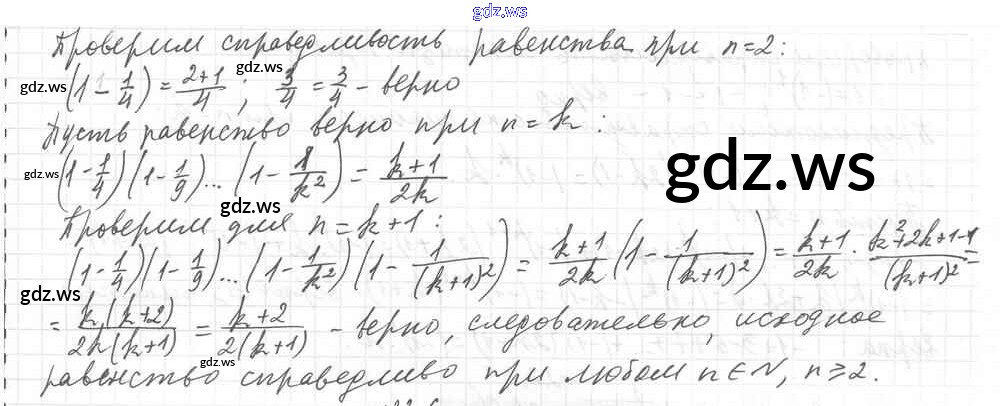 gdz.ws
Проверим справедливость равенства при n=2:
gdz.ws
gdz.ws (1 - 1/4) = (2+1)/4 ; 3/4 = 3/4 - верно
Пусть равенство верно при n = k :
gdz.ws (1 - 1/4)(1 - 1/9)...(1 - 1/k²) = (k+1)/2k
gdz.ws
gdz.ws
Проверим для n = k+1 :
(1 - 1/4)(1 - 1/9)...(1 - 1/k²)(1 - 1/(k+1)²) = (k+1)/2k (1 - 1/(k+1)²) = (k+1)/2k · (k²+2k+1-1)/(k+1)² =
gdz.ws
= k(k+2)/2k(k+1) = (k+2)/2(k+1) - верно, следовательно, исходное
gdz.ws
равенство справедливо при любом n∈N, n≥2.